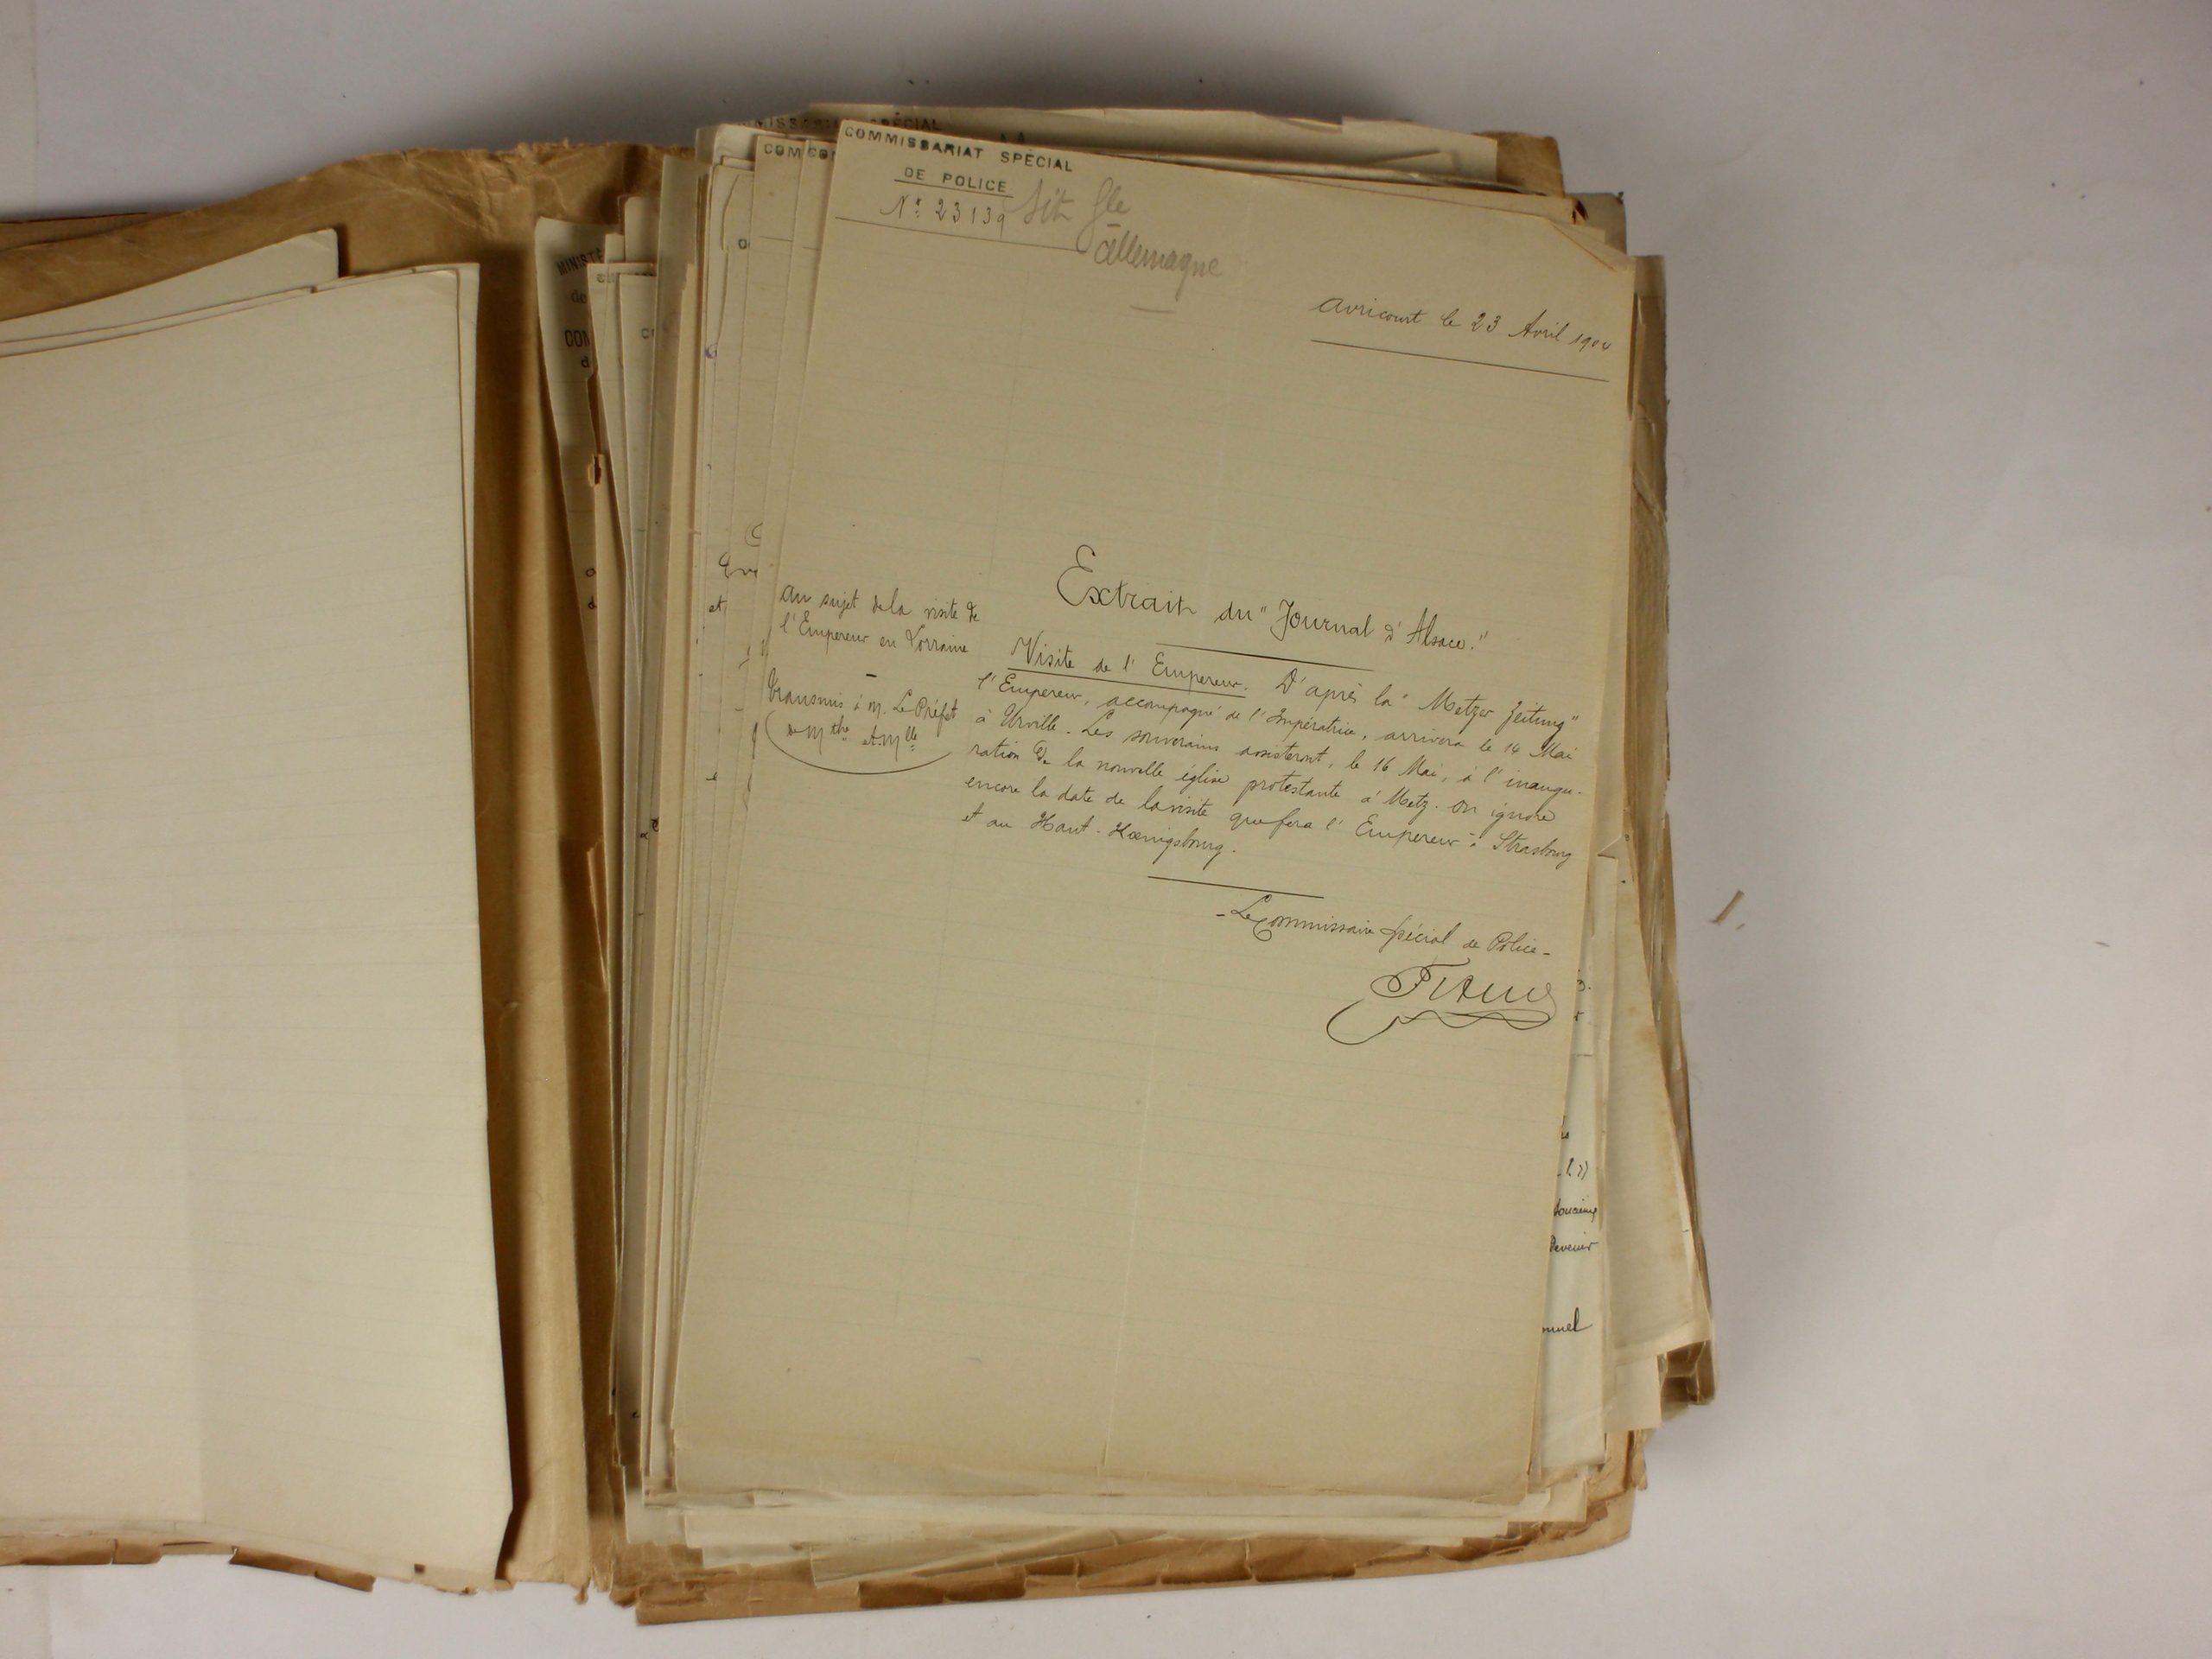 COMMISSARIAT SPÉCIAL
DE POLICE
N° 23139
Sit Gle
Allemagne
Avricourt le 23 Avril 1904
Au sujet de la visite de
l'Empereur en Lorraine
Transmis à M. Le Préfet
de Mthe et Mlle
Extrait du "Journal d'Alsace."
Visite de l'Empereur. D'après la "Metzer Zeitung"
l'Empereur, accompagné de l'Impératrice, arrivera le 14 Mai
à Urville. Les souverains assisteront, le 16 Mai, à l'inaugu-
ration de la nouvelle église protestante à Metz. On ignore
encore la date de la visite que fera l'Empereur à Strasbourg
et au Haut-Kœnigsbourg.
- Le Commissaire Spécial de Police -
MINISTÈ
COM
COM
MISSARIAT SPÉCIAL
et
Devenir